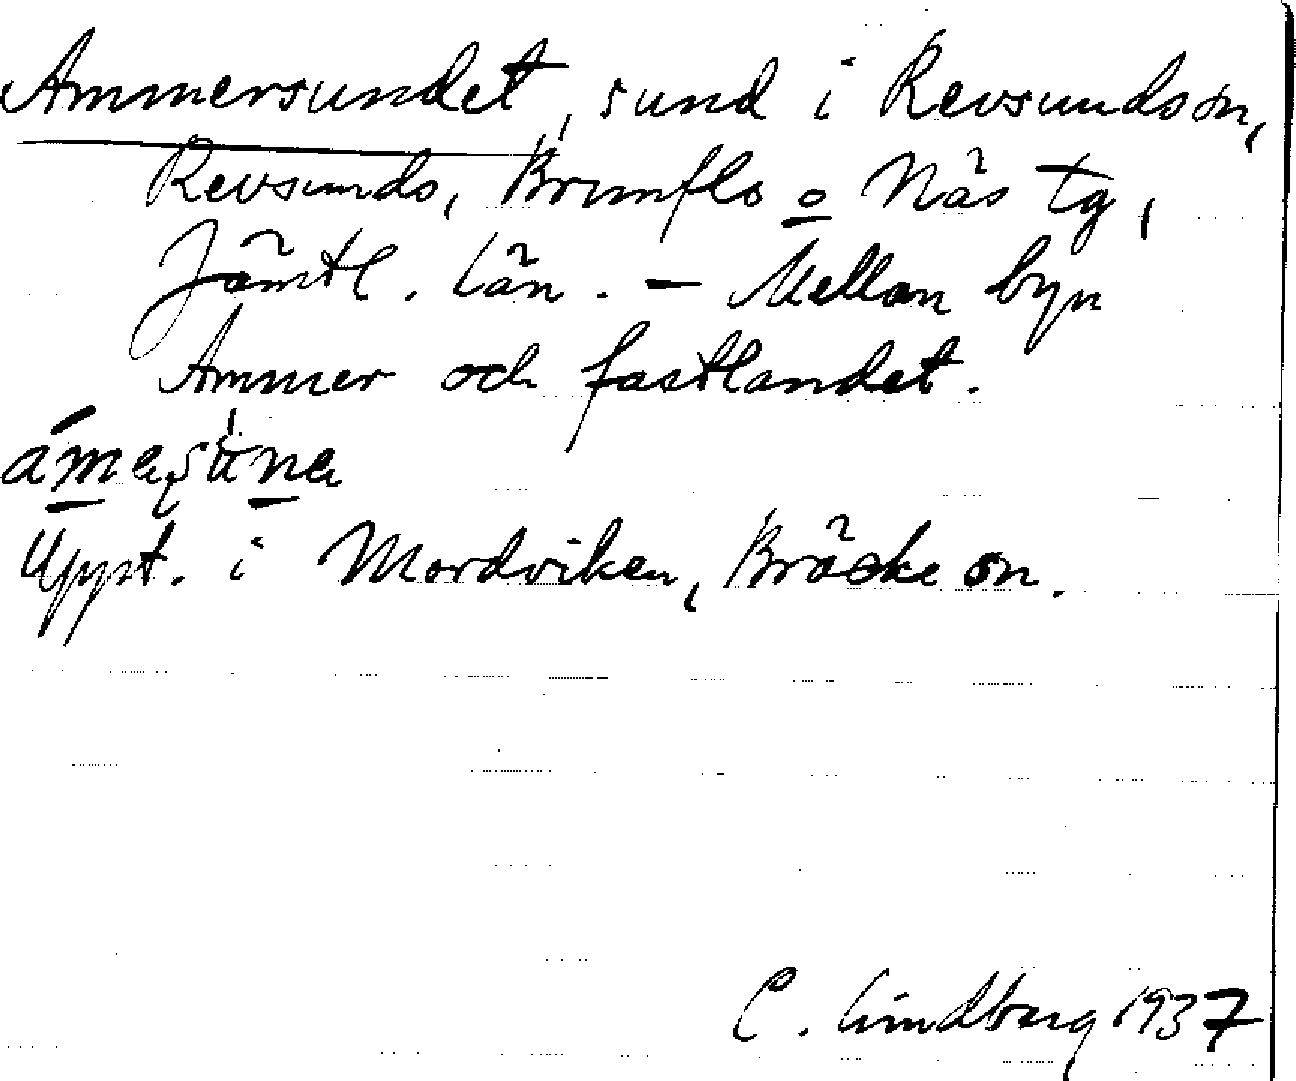 Ammersundet, sund i Revsunds sn,
Revsunds, Brunflo o Näs tg,
Jämtl. län. – Mellan byn
Ammer och fastlandet.
Uppt. i Mordviken, Bräcke sn.
C. Lindberg 1937